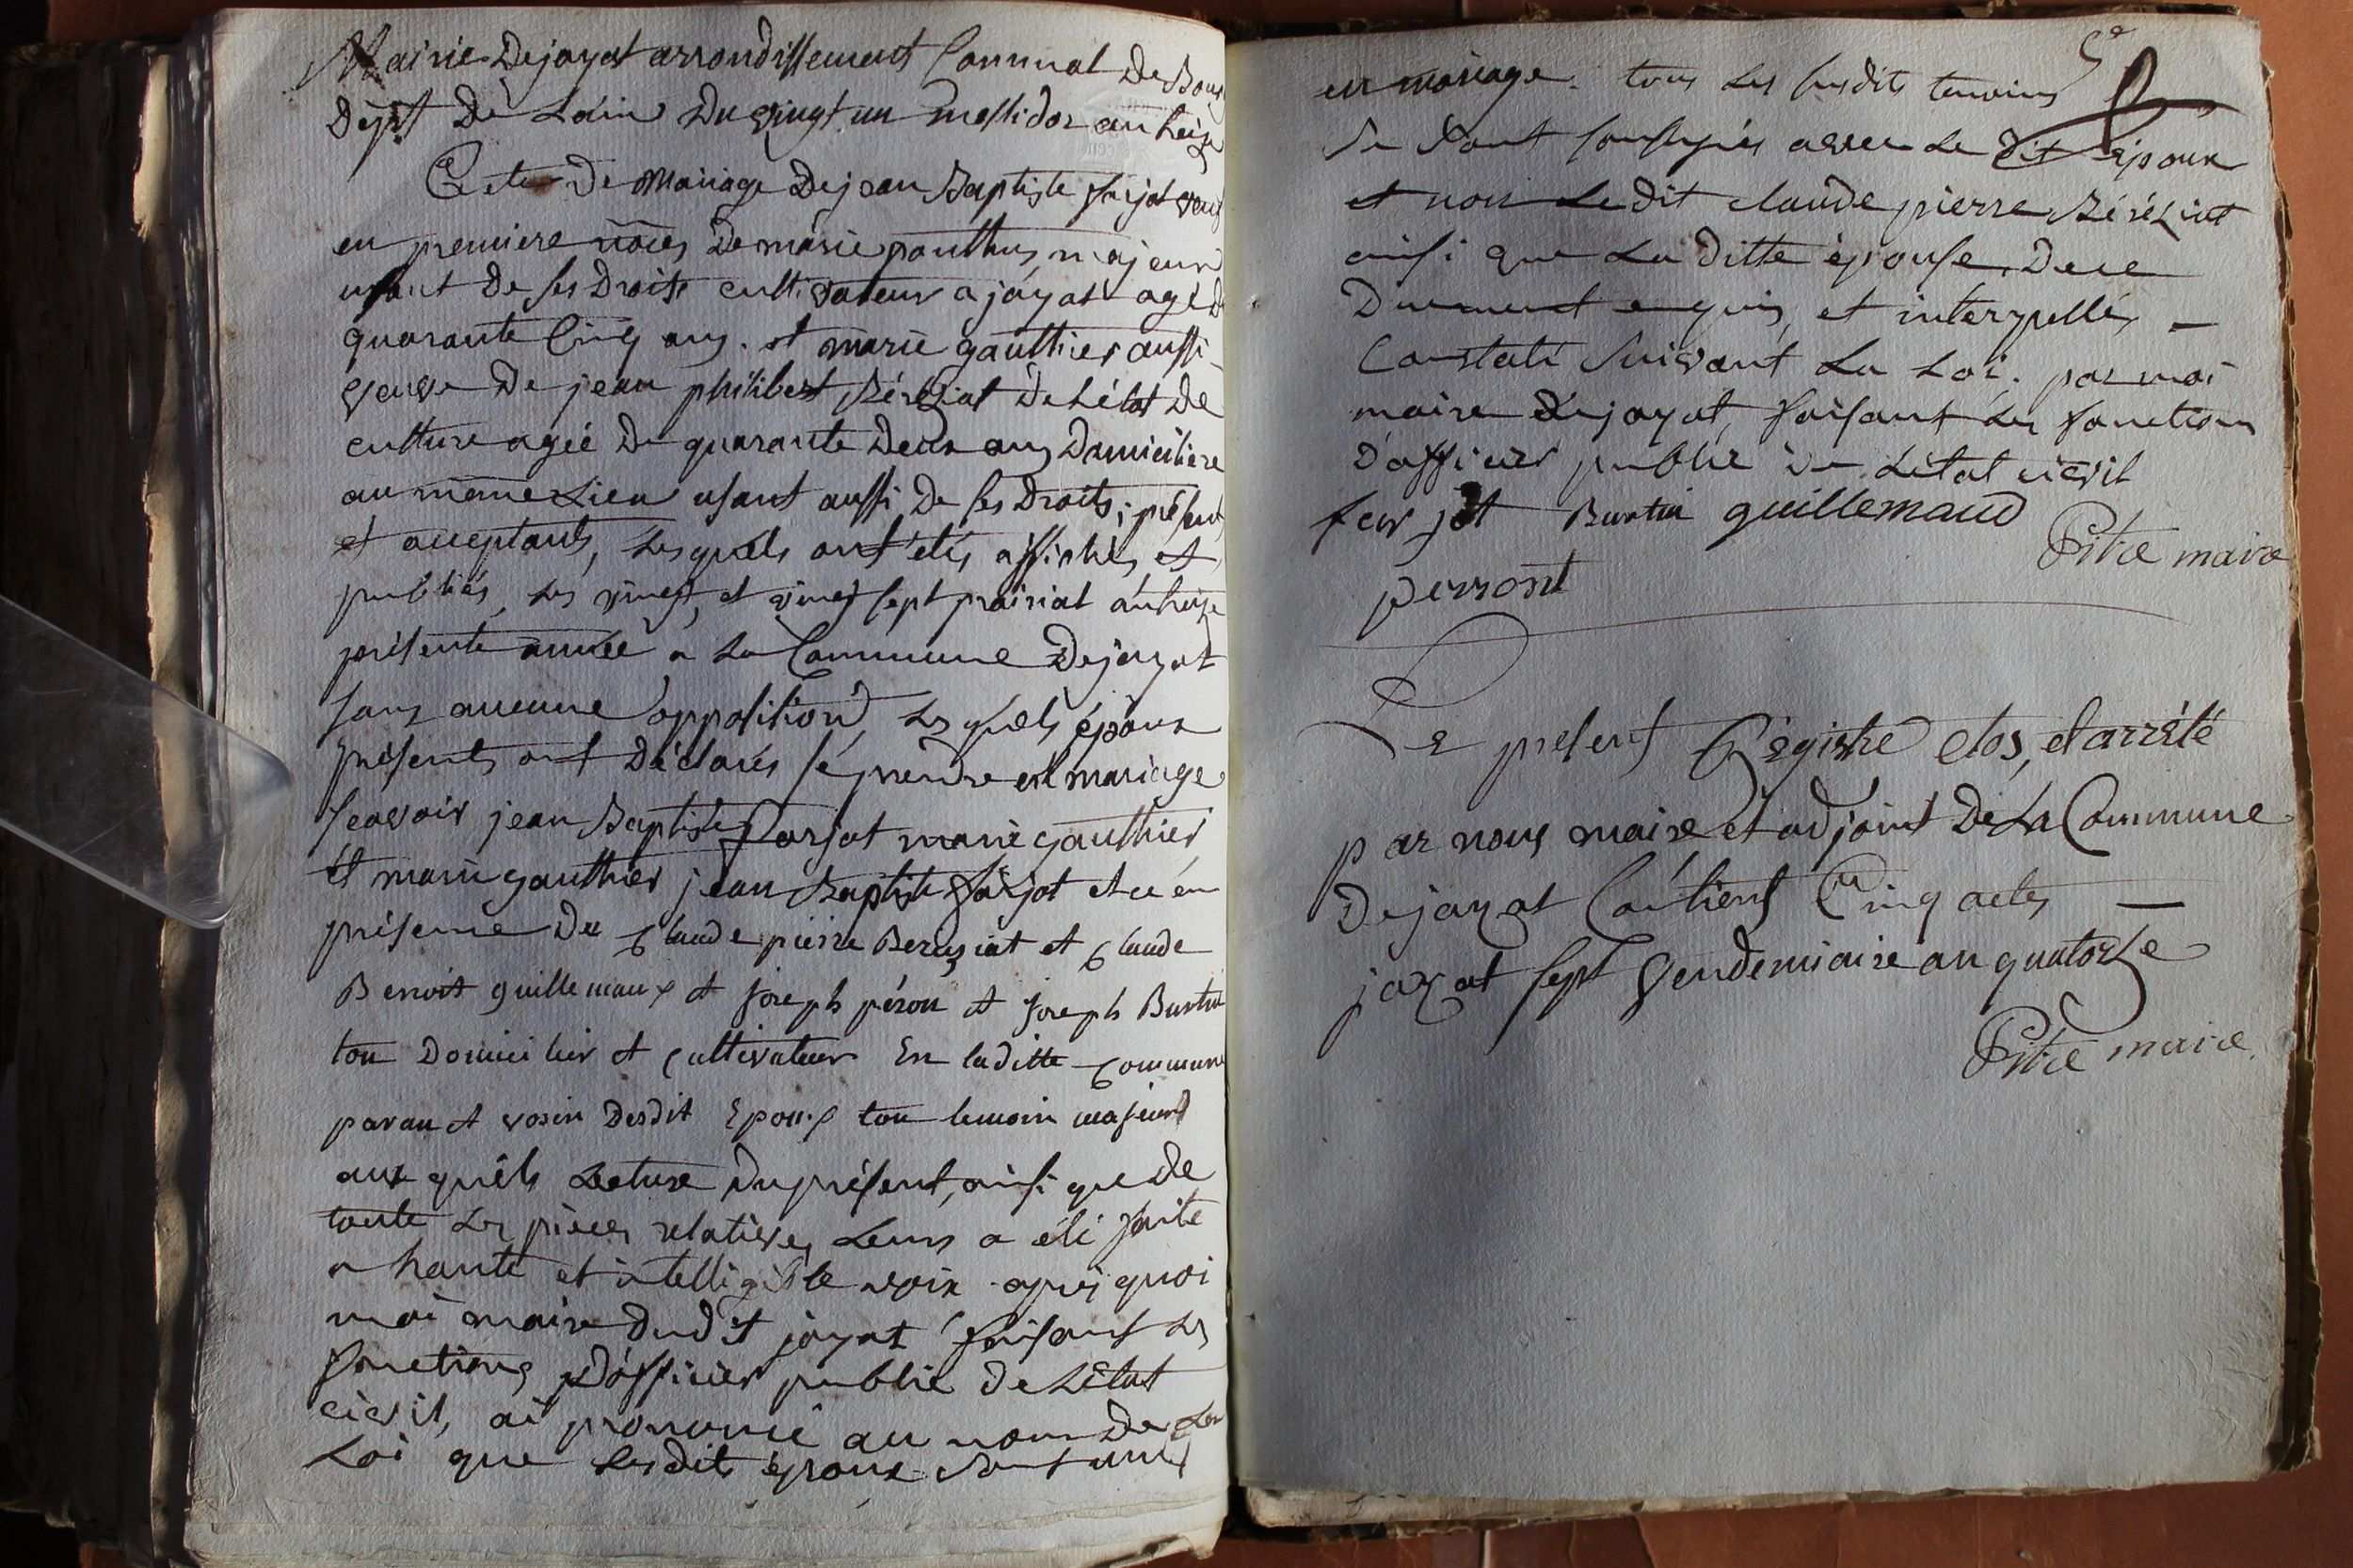 Mairie Dejayat arrondissement Communal De Bourg
Dépt De Lain Du vingt un messidor an treize
Acte De Mariage Dejean Baptiste farjot veuf
en premiere nôces De marie panthus majeur
usant De ses Droits cultivateur a jayat agé De
quarante Cinq ans. et marie gauthier aussi
veuve De jean philibert Béréziat De Létat De
culture agéé De quarante Deux ans Domiciliére
au même Lieu usant aussi De ses Droits; présents
et acceptants, Lesquels ont étés affichés et
publiés, Les vingt, et vingt sept prairial an treize
présente année a La Commune Dejayat
sans aucune opposition, Les quels époux
présents ont Déclarés se prendre en mariage
scavoir jean Baptiste farjot marie gauthier
et marie gauthier jean Baptiste farjot et ce en
présence De Claude pierre Bereziat et Claude
Benoit guillemaux et joseph péron et joseph Burtin
tou Domicilier et Cultivateur En laditte Commune
paran et vosin Desdit Epoux tou temoin majeurs
aux quêls Lecture Du présent, ainsi que De
toute Les pièces relatives Leurs a été faite
a haute et intelligible voix après quoi
moi maire dudit jayat faisant Les
fonctions D'officier public De Létat
civil, ai prononcé au nom De La
Loi que Lesdits époux sont unis
5e
en mariage. tous Les susdits temoins
Se sont soussignés avec Le Dit époux
et non Le Dit claude pierre Béréziat
ainsi que La Ditte épouse, De ce
Duement enquis, et interpellés
Constaté Suivant La Loi. par moi
maire Dejayat, faisant Les fonctions
D'officier public De Létat civil
farjot Burtin guillemaud
Pitre maire
perront
Le present Régistre clos, et arrêté
par nous maire et adjoint De La Commune
Dejayat Contient Cinq actes
jayat sept Vendemiaire an quatorze
Pitre maire